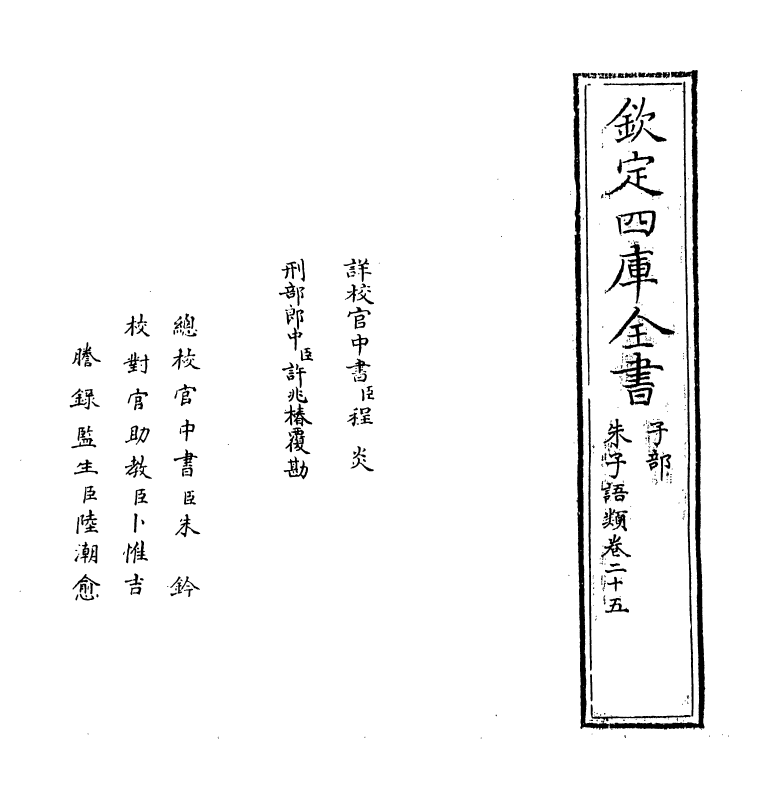 欽定四庫全書
子部
朱子語類卷二十五
詳校官中書臣程炎
刑部郎中臣許兆椿覆勘
總校官中書臣朱鈐
校對官助教臣卜惟吉
謄録監生臣陸潮愈